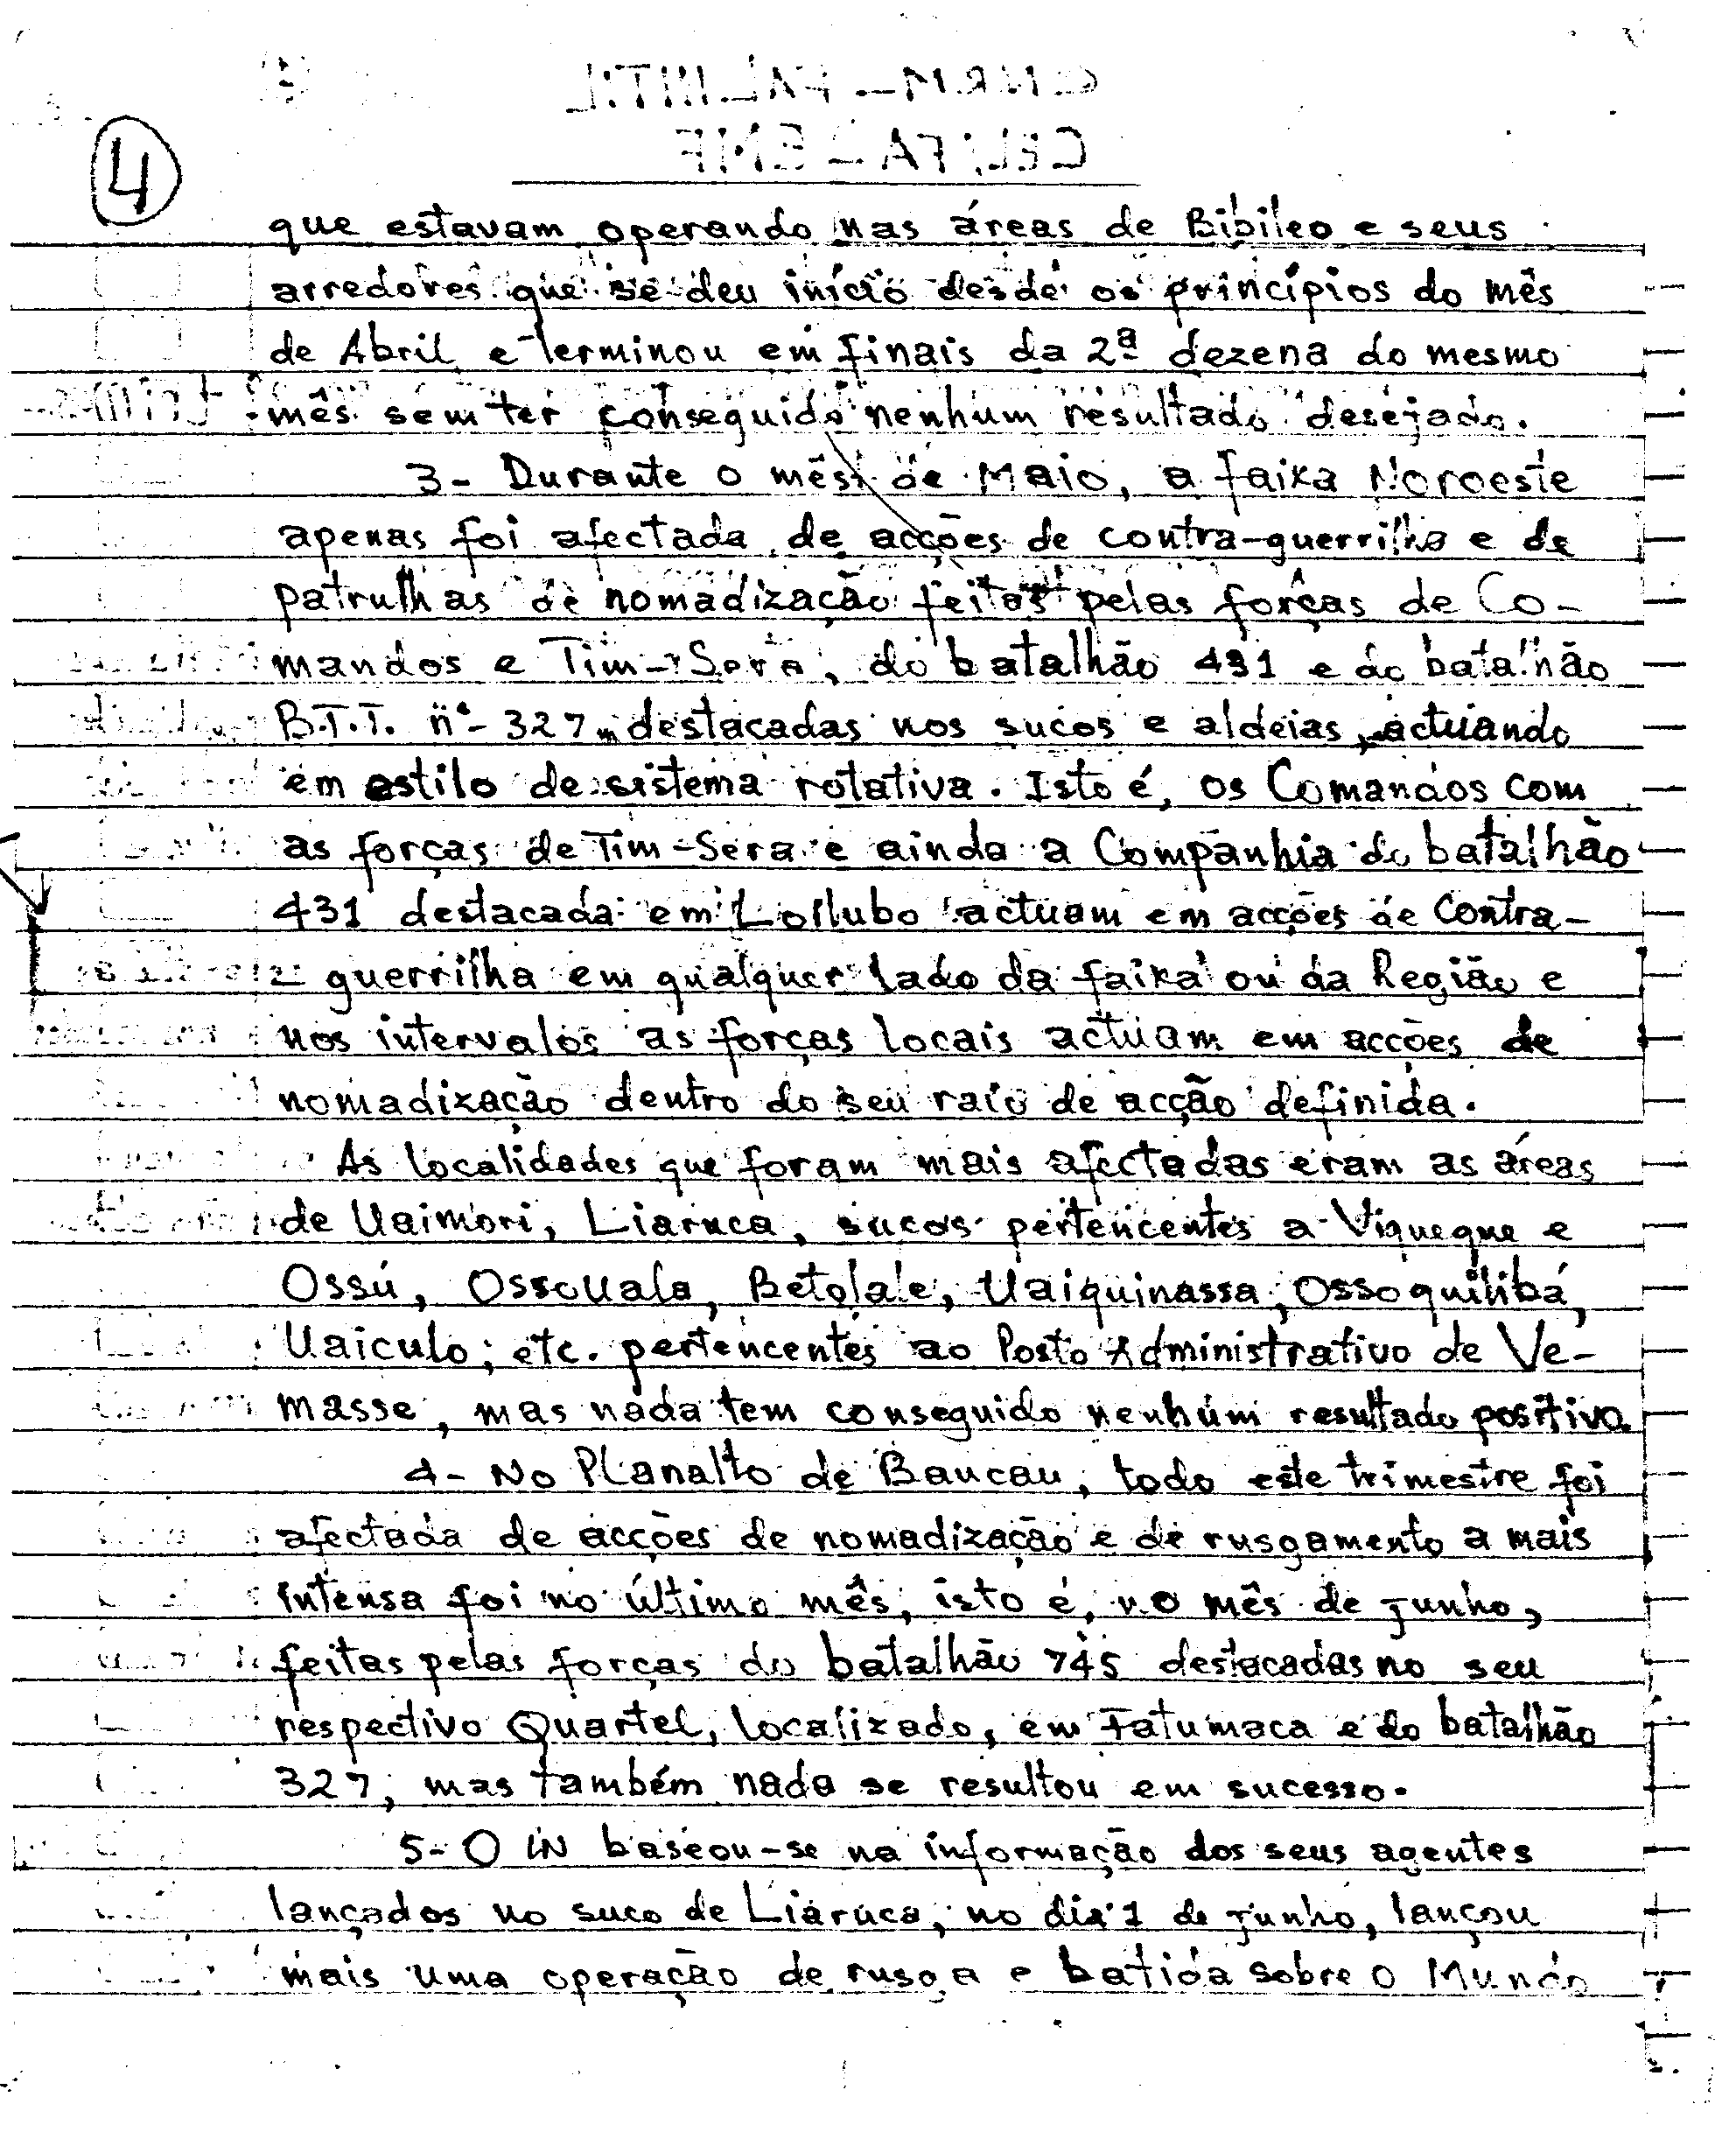 4
que estavam operando nas áreas de Bibileo e seus
arredores que se deu início desde os princípios do mês
de Abril e terminou em finais da 2ª dezena do mesmo
mês sem ter conseguido nenhum resultado desejado.
3- Durante o mês de Maio, a faixa Noroeste
apenas foi afectada de acções de contra-guerrilha e de
patrulhas de nomadização feitas pelas forças de Co-
mandos e Tim-Sera, do batalhão 431 e do batalhão
B.T.T. nº- 327 destacadas nos sucos e aldeias, actuando
em estilo de sistema rotativa. Isto é, os Comandos com
as forças de Tim-Sera e ainda a Companhia do batalhão
431 destacada em Loilubo actuam em acções de Contra-
guerrilha em qualquer lado da faixa ou da Região e
nos intervalos as forças locais actuam em acções de
nomadização dentro do seu raio de acção definida.
As localidades que foram mais afectadas eram as áreas
de Uaimori, Liaruca, sucos pertencentes a Viqueque e
Ossú, Ossouala, Betolale, Uaiquinassa, Ossoquilibá,
Uaiculo; etc. pertencentes ao Posto Administrativo de Ve-
masse, mas nada tem conseguido nenhum resultado positivo.
4- No Planalto de Baucau, todo este trimestre foi
afectada de acções de nomadização e de rusgamento a mais
intensa foi no último mês, isto é, no mês de junho,
feitas pelas forças do batalhão 745 destacadas no seu
respectivo Quartel, localizado, em Fatumaca e do batalhão
327, mas também nada se resultou em sucesso.
5- O IN baseou-se na informação dos seus agentes
lançados no suco de Liaruca, no dia 1 de junho, lançou
mais uma operação de rusga e batida sobre o Mundo